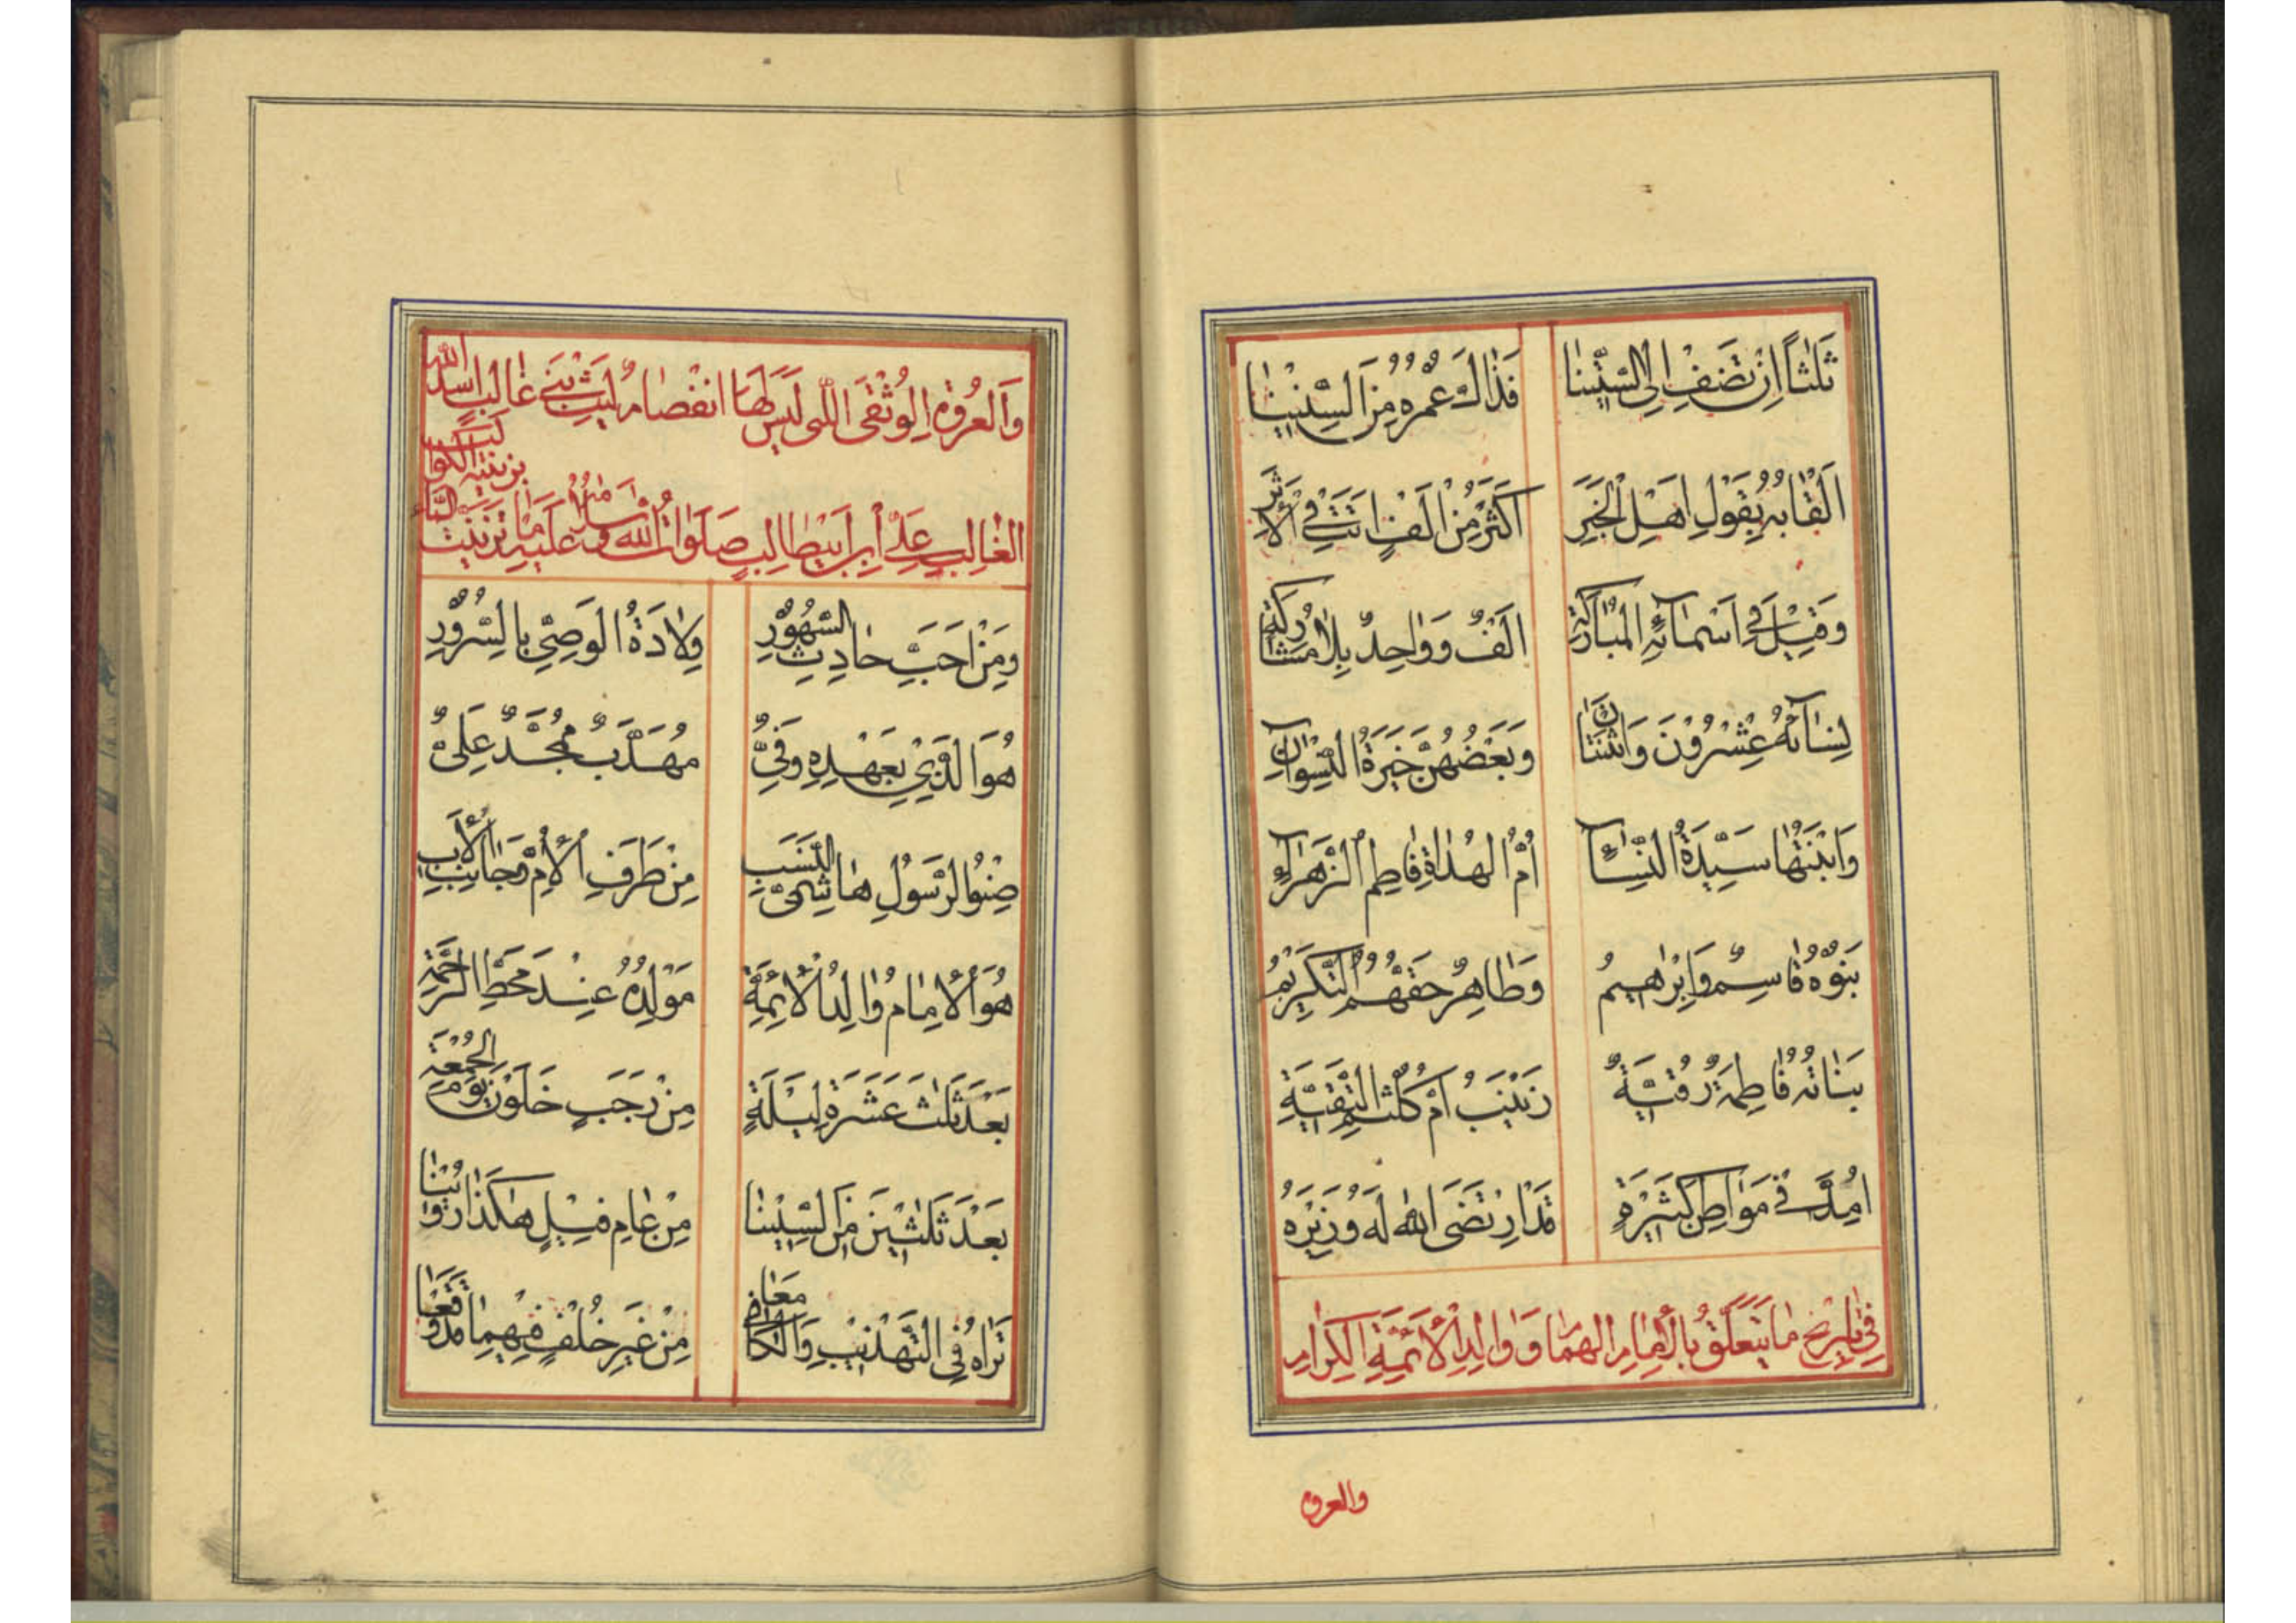 ثَلٰثاً اِنْ تَضِفْ اِلَى السِّتّينٰا فَذٰالَكَ عُمْرُهُ مِنَ السِّنينٰا
اَلْقٰابُهُ بِقَوْلِ اَهْلِ الْخَبَرِ اَكْثَرُ مِنْ اَلْفٍ اَتَتْ فِي الْاَثَرِ
وَقيلَ في اَسْمٰآئِهِ الْمُبٰارَكَةِ اَلْفٌ وَوٰاحِدٌ بِلاٰ مُشٰارَكَةِ
نِسٰآئُهُ عِشْرُونَ وَاثْنَتٰانِ وَبَعْضُهُنَّ خَيْرَةُ النِّسْوٰانِ
وَابْنَتُهٰا سَيِّدَةُ النِّسٰآءِ اُمُّ الْهُدٰاةِ فٰاطِمُ الزَّهْرٰآءِ
بَنُوهُ قٰاسِمٌ وَاِبْرٰاهيمُ وَطٰاهِرٌ حَقُّهُمُ التَّكْريمُ
بَنٰاتُهُ فٰاطِمَةُ رُقَيَّةٌ زَيْنَبُ اُمُّ كُلْثُمِ التَّقِيَّةِ
اُمِدَّ في مَوٰاطِنَ كَثيرَةٍ قَدِ ارْتَضَى اللهُ لَهُ وَزيرَهُ
في تٰاريخِ مٰا يَتَعَلَّقُ بِالْاِمٰامِ الْهُمٰامِ وَوٰالِدِ الْاَئِمَّةِ الْكِرٰامِ
والعروه
وَالْعُرْوَةِ الْوُثْقىَ الَّتي لَيْسَ لَهَا انْفِصٰامٌ لَيْثِ بَني غٰالِبٍ اَسَدِ اللهِ
الْغٰالِبِ عَلِيِّ ابْنِ ابيطٰالِبٍ صَلَوٰاتُ اللهِ وَسَلاٰمُهُ عَلَيْهِ مٰا تَزَيَّنَتِ السَّمٰآءُ بِزينَةِ الْكَوٰاكِبِ
وَمِنْ اَحَبِّ حٰادِثِ الشُّهُورِ وِلاٰدَةُ الْوَصِيِّ بِالسُّرُورِ
هُوَ الَّذي بِعَهْدِهِ وَفِيٌّ مُهَذَّبٌ مُمَجَّدٌ عَلِيٌّ
صِنْوُ الرَّسُولِ هٰاشِمِىُّ النَّسَبِ مِنْ طَرَفِ الْاُمِّ وَجٰانِبِ الْاَبِ
هُوَ الْاِمٰامُ وٰالِدُ الْاَئِمَّةِ مَوْلِدُهُ عِنْدَ مَحَطِّ الرَّحْمَةِ
بَعْدَ ثَلٰثَ عَشَرَةِ لَيْلَةٍ مِنْ رَجَبٍ خَلَوْنَ يَوْمَ الْجُمْعَةِ
بَعْدَ ثَلٰثينَ مِنَ السِّنينٰا مِنْ عٰامِ فيلٍ هٰكَذٰا رُوّينٰا
تَرٰاهُ فِي التَّهْذيبِ وَالْكٰافي مَعٰا مِنْ غَيْرِ خُلْفٍ فيهِمٰا قَدْ وَقَعٰا